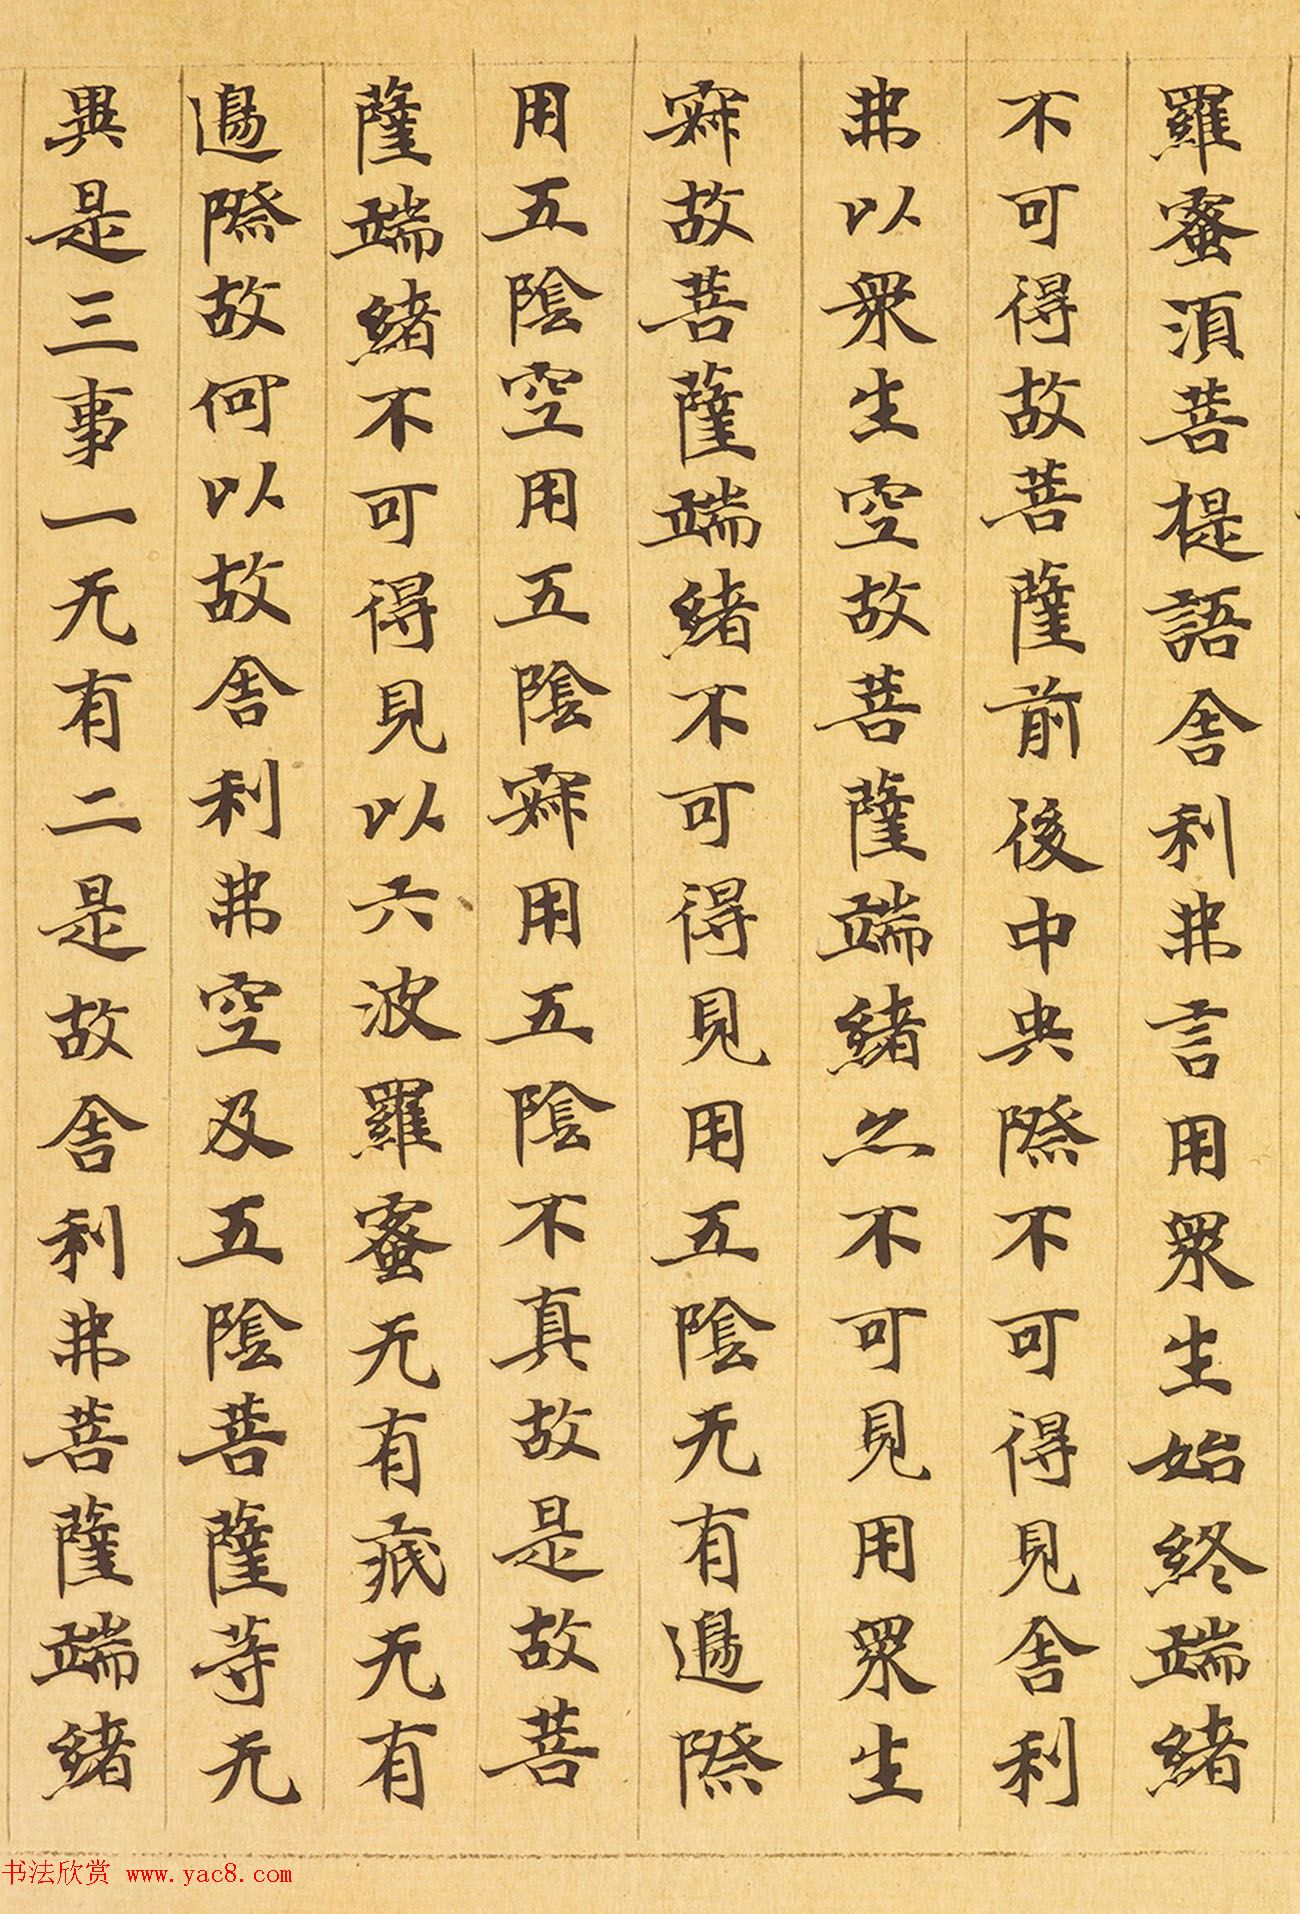 羅蜜須菩提語舍利弗言用眾生始終端緒
不可得故菩薩前後中央際不可得見舍利
弗以眾生空故菩薩端緒亦不可見用眾生
寂故菩薩端緒不可得見用五陰无有邊際
用五陰空用五陰寂用五陰不真故是故菩
薩端緒不可得見以六波羅蜜无有底无有
邊際故何以故舍利弗空及五陰菩薩等无
異是三事一无有二是故舍利弗菩薩端緒
书法欣赏 www.yac8.com